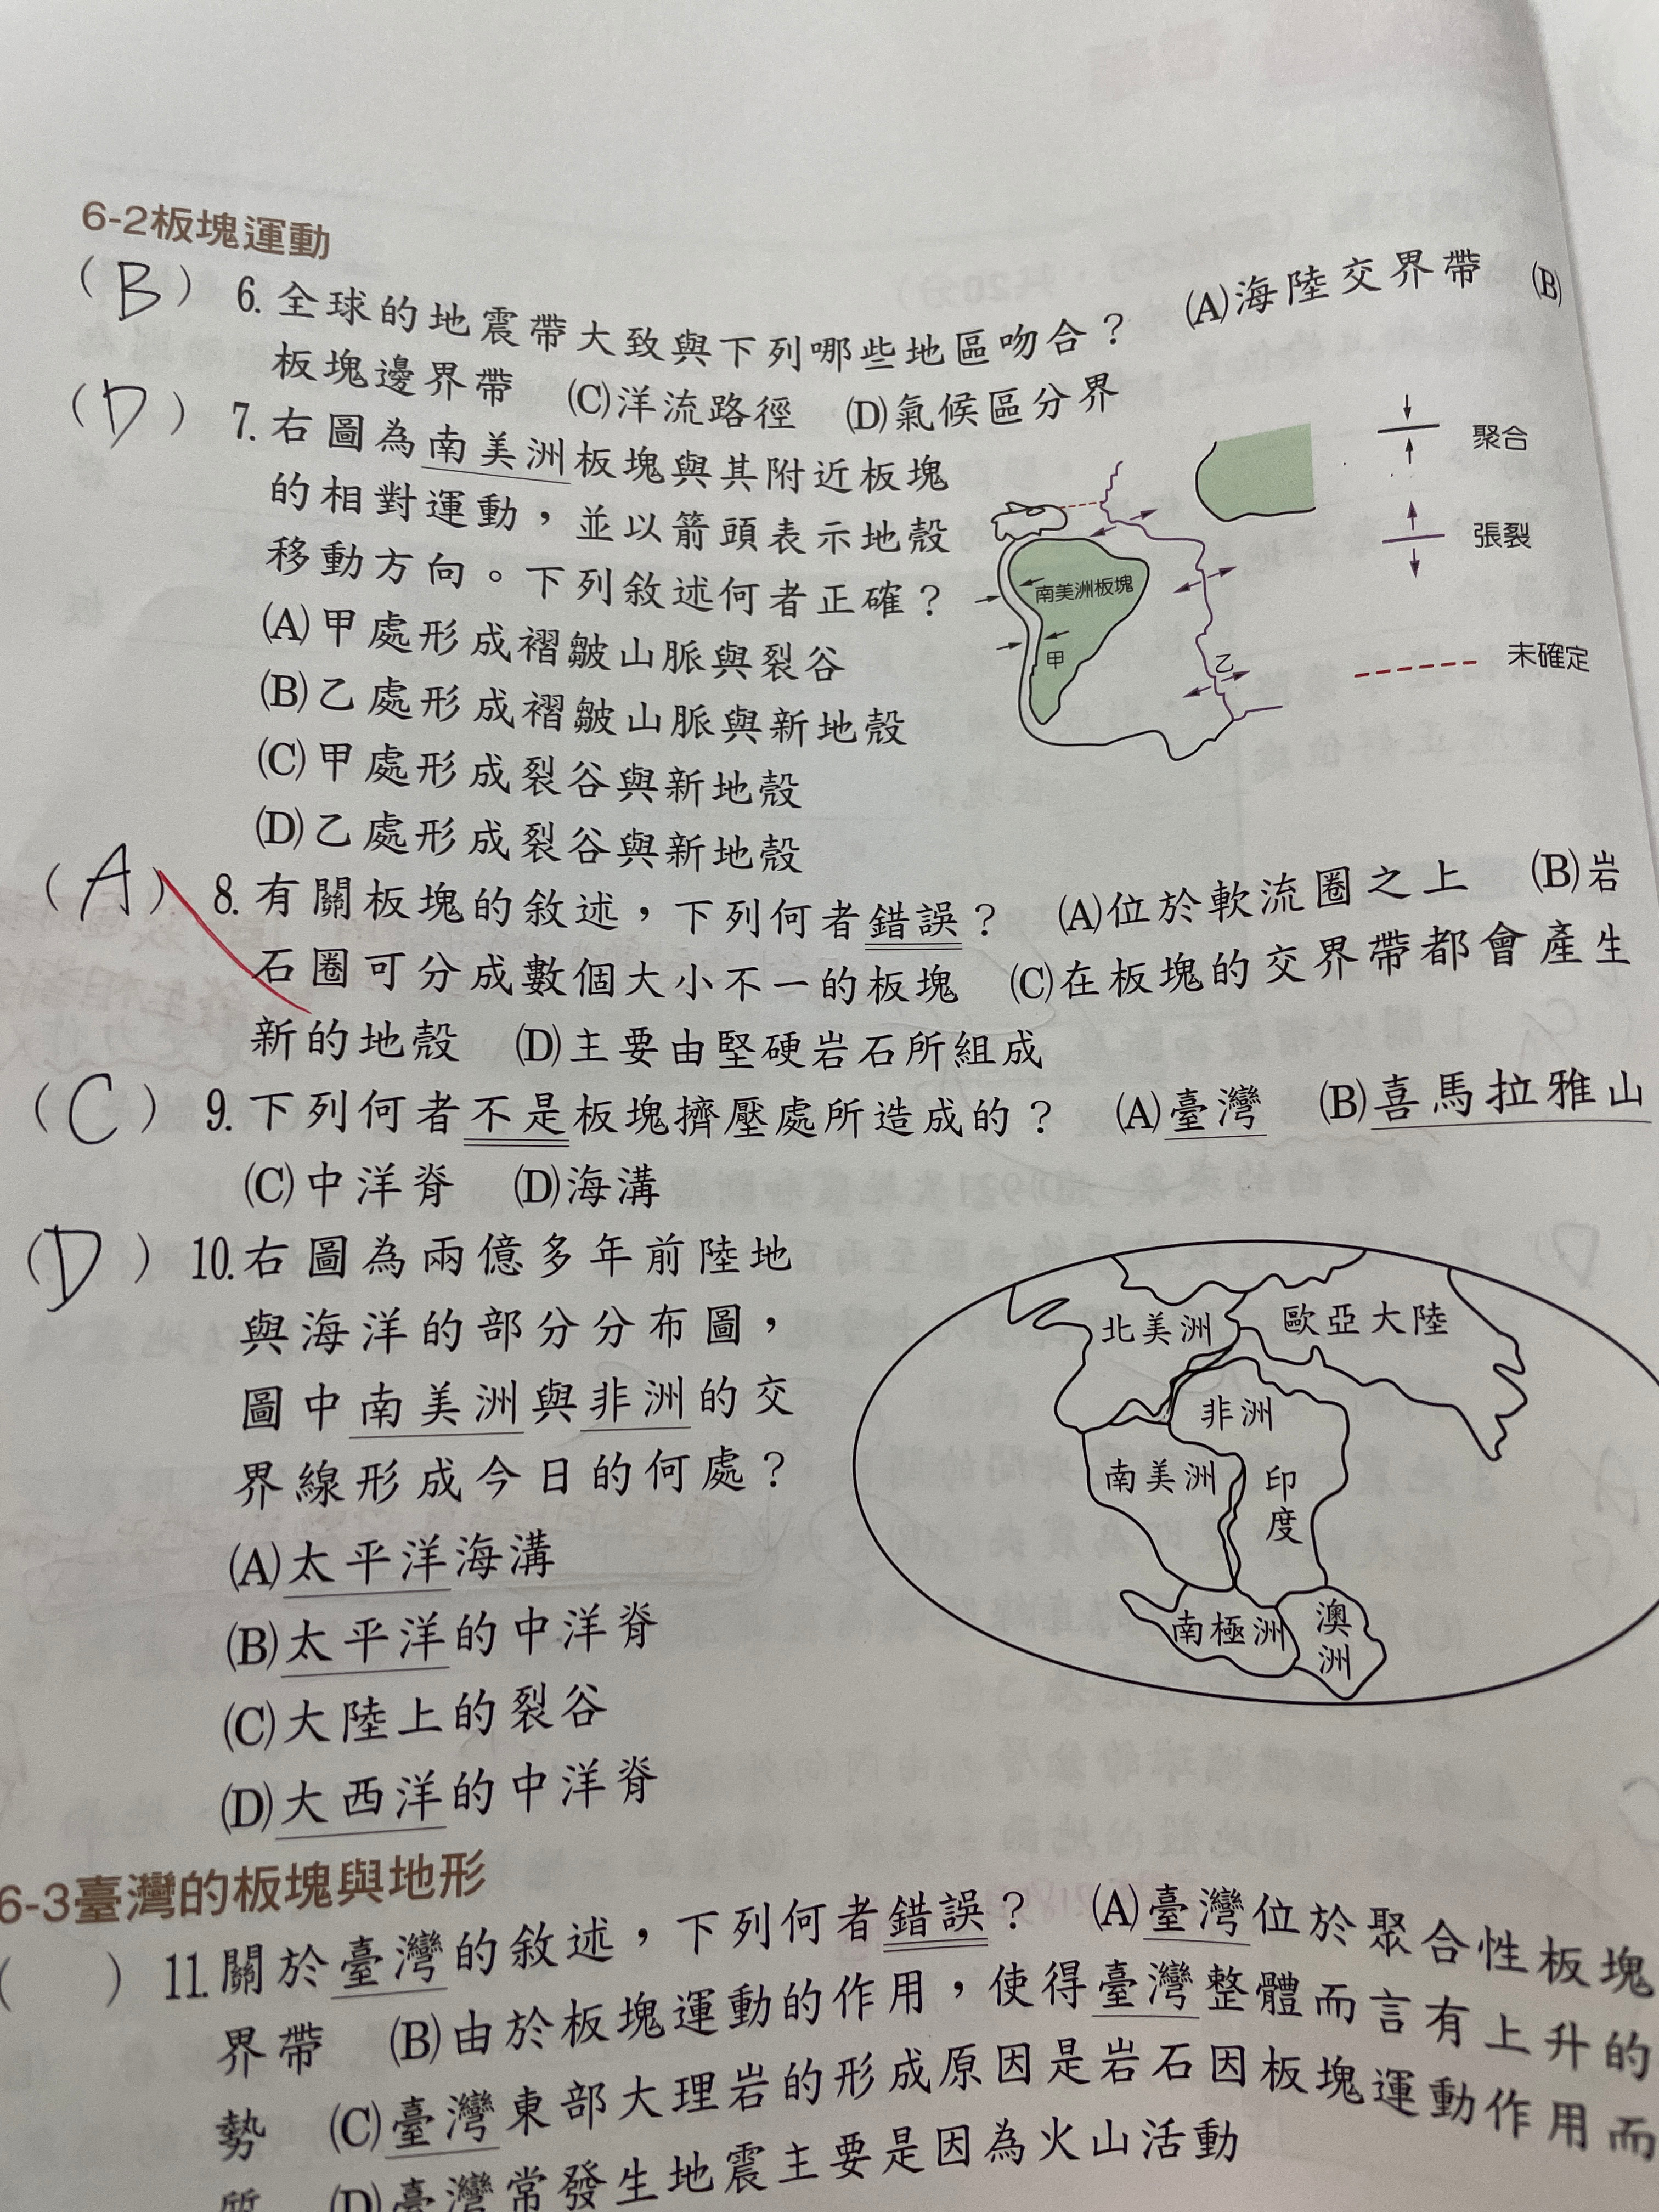 6-2板塊運動
(B) 6. 全球的地震帶大致與下列哪些地區吻合? (A)海陸交界帶 (B)
板塊邊界帶 (C)洋流路徑 (D)氣候區分界
(D) 7. 右圖為南美洲板塊與其附近板塊
的相對運動,並以箭頭表示地殼
移動方向。下列敘述何者正確?
(A)甲處形成褶皺山脈與裂谷
(B)乙處形成褶皺山脈與新地殼
(C)甲處形成裂谷與新地殼
(D)乙處形成裂谷與新地殼
聚合
張裂
未確定
南美洲板塊
甲
乙
(A) 8. 有關板塊的敘述,下列何者錯誤? (A)位於軟流圈之上 (B)岩
石圈可分成數個大小不一的板塊 (C)在板塊的交界帶都會產生
新的地殼 (D)主要由堅硬岩石所組成
(C) 9. 下列何者不是板塊擠壓處所造成的? (A)臺灣 (B)喜馬拉雅山
(C)中洋脊 (D)海溝
(D) 10. 右圖為兩億多年前陸地
與海洋的部分分布圖,
圖中南美洲與非洲的交
界線形成今日的何處?
(A)太平洋海溝
(B)太平洋的中洋脊
(C)大陸上的裂谷
(D)大西洋的中洋脊
北美洲
歐亞大陸
非洲
南美洲
印度
南極洲
澳洲
6-3臺灣的板塊與地形
( ) 11. 關於臺灣的敘述,下列何者錯誤? (A)臺灣位於聚合性板塊
界帶 (B)由於板塊運動的作用,使得臺灣整體而言有上升的
勢 (C)臺灣東部大理岩的形成原因是岩石因板塊運動作用而
質 (D)臺灣常發生地震主要是因為火山活動